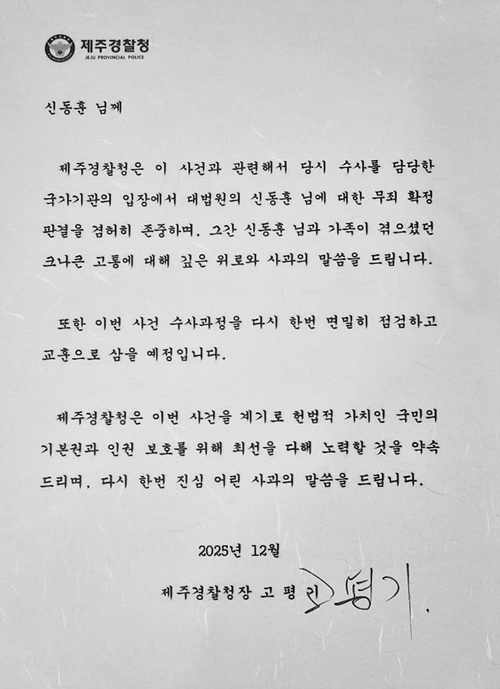 제주경찰청
JEJU PROVINCIAL POLICE
신동훈 님께
제주경찰청은 이 사건과 관련해서 당시 수사를 담당한
국가기관의 입장에서 대법원의 신동훈 님에 대한 무죄 확정
판결을 겸허히 존중하며, 그간 신동훈 님과 가족이 겪으셨던
크나큰 고통에 대해 깊은 위로와 사과의 말씀을 드립니다.
또한 이번 사건 수사과정을 다시 한번 면밀히 점검하고
교훈으로 삼을 예정입니다.
제주경찰청은 이번 사건을 계기로 헌법적 가치인 국민의
기본권과 인권 보호를 위해 최선을 다해 노력할 것을 약속
드리며, 다시 한번 진심 어린 사과의 말씀을 드립니다.
2025년 12월
제주경찰청장 고 평 기 고평기.